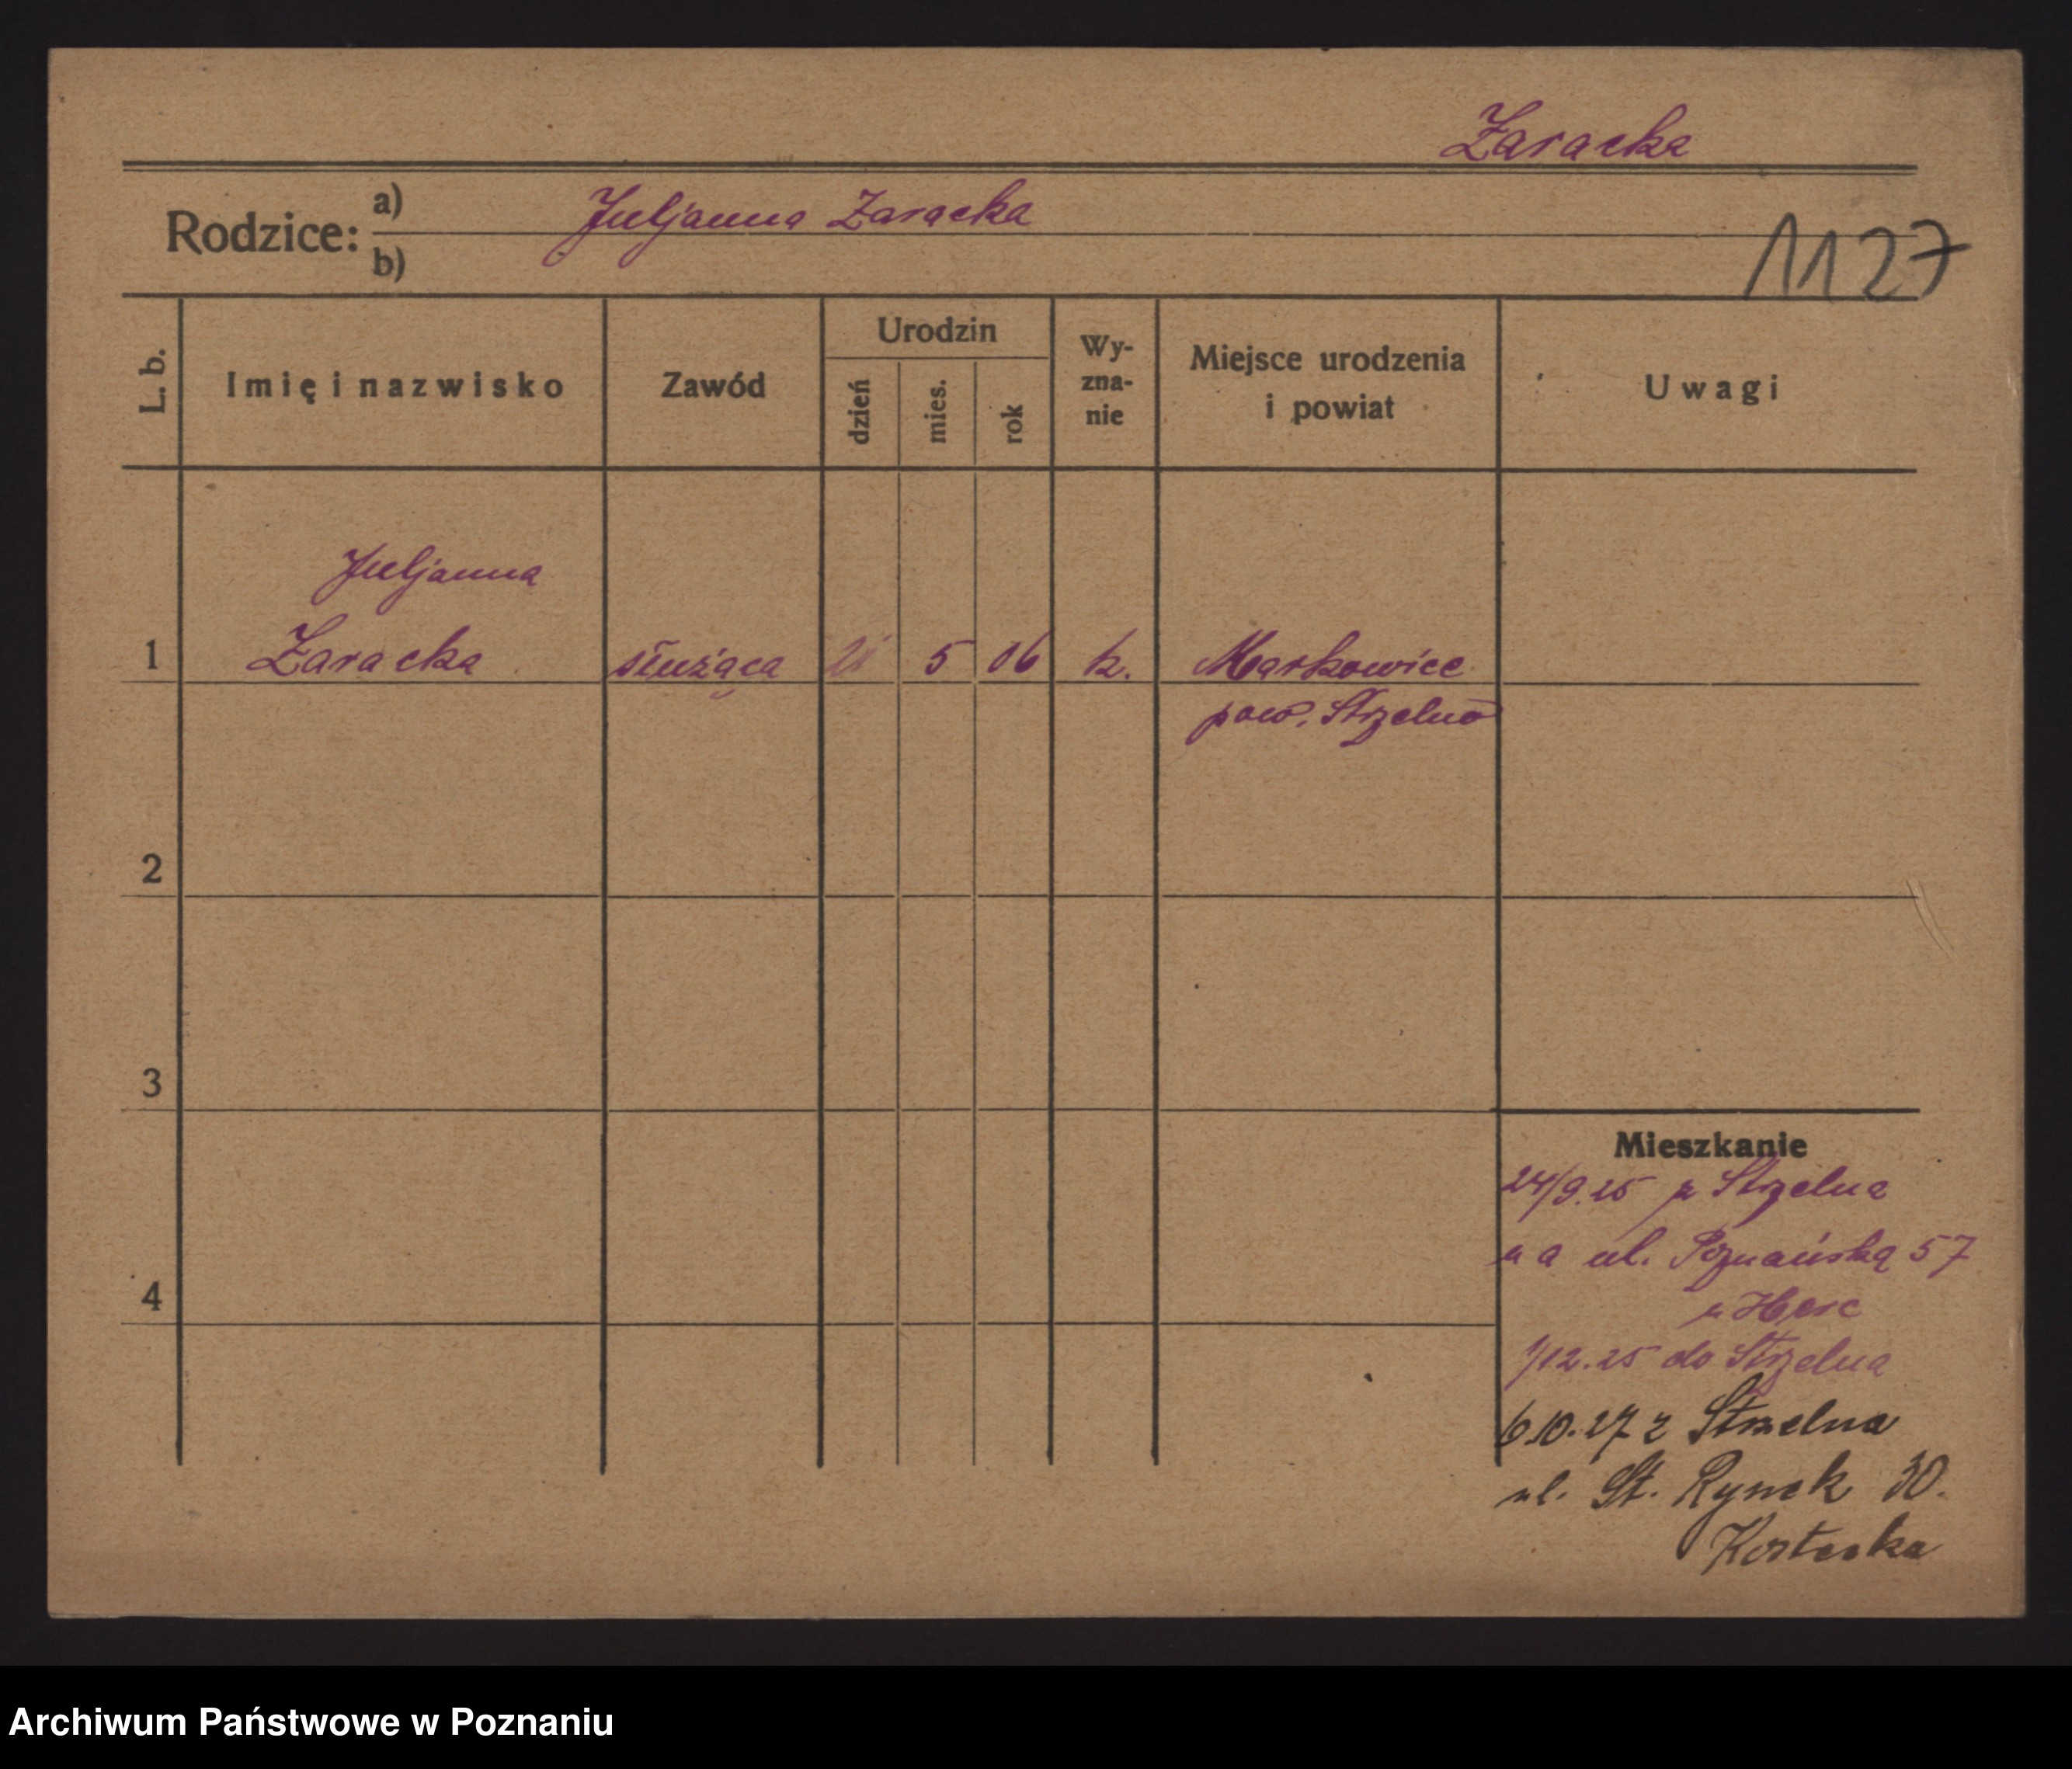 Zaracka
Rodzice: a) Juljanna Zaracka
b)
1127
L. b.
Imię i nazwisko
Zawód
Urodzin
dzień
mies.
rok
Wy-
zna-
nie
Miejsce urodzenia
i powiat
Uwagi
Juljanna
1 Zaracka służąca 5 06 k. Markowice
pow. Strzelno
2
3
4
Mieszkanie
24/9.25 z Strzelna
na ul. Poznańską 57
u
1/12.25 do Strzelna
6.10.27 z Strzelna
ul. St. Rynek 30.
Archiwum Państwowe w Poznaniu